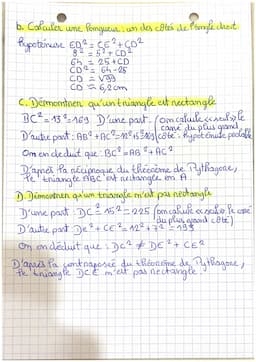 b. Calculer une longueur : un des côtés de l'angle droit
hypoténuse ED² = CE² + CD²
8² = 5² + CD²
64 = 25 + CD
CD² = 64 - 25
CD = √39
CD ≈ 6,2 cm
C. Démontrer qu'un triangle est rectangle
BC² = 13² = 169 D'une part. (on calcule « seul » le
carré du plus grand
D'autre part : AB² + AC² = 12² + 5² = 169 côté : hypoténuse
On en déduit que : BC² = AB² + AC²
D'après la réciproque du théorème de Pythagore,
le triangle ABC est rectangle en A
D. Démontrer qu'un triangle n'est pas rectangle
D'une part : DC² = 15² = 225 (on calcule « seul » le carré
du plus grand côté)
D'autre part DE² + CE² = 12² + 7² = 193
On en déduit que : DC² ≠ DE² + CE²
D'après la contraposée du théorème de Pythagore,
le triangle DCE n'est pas rectangle